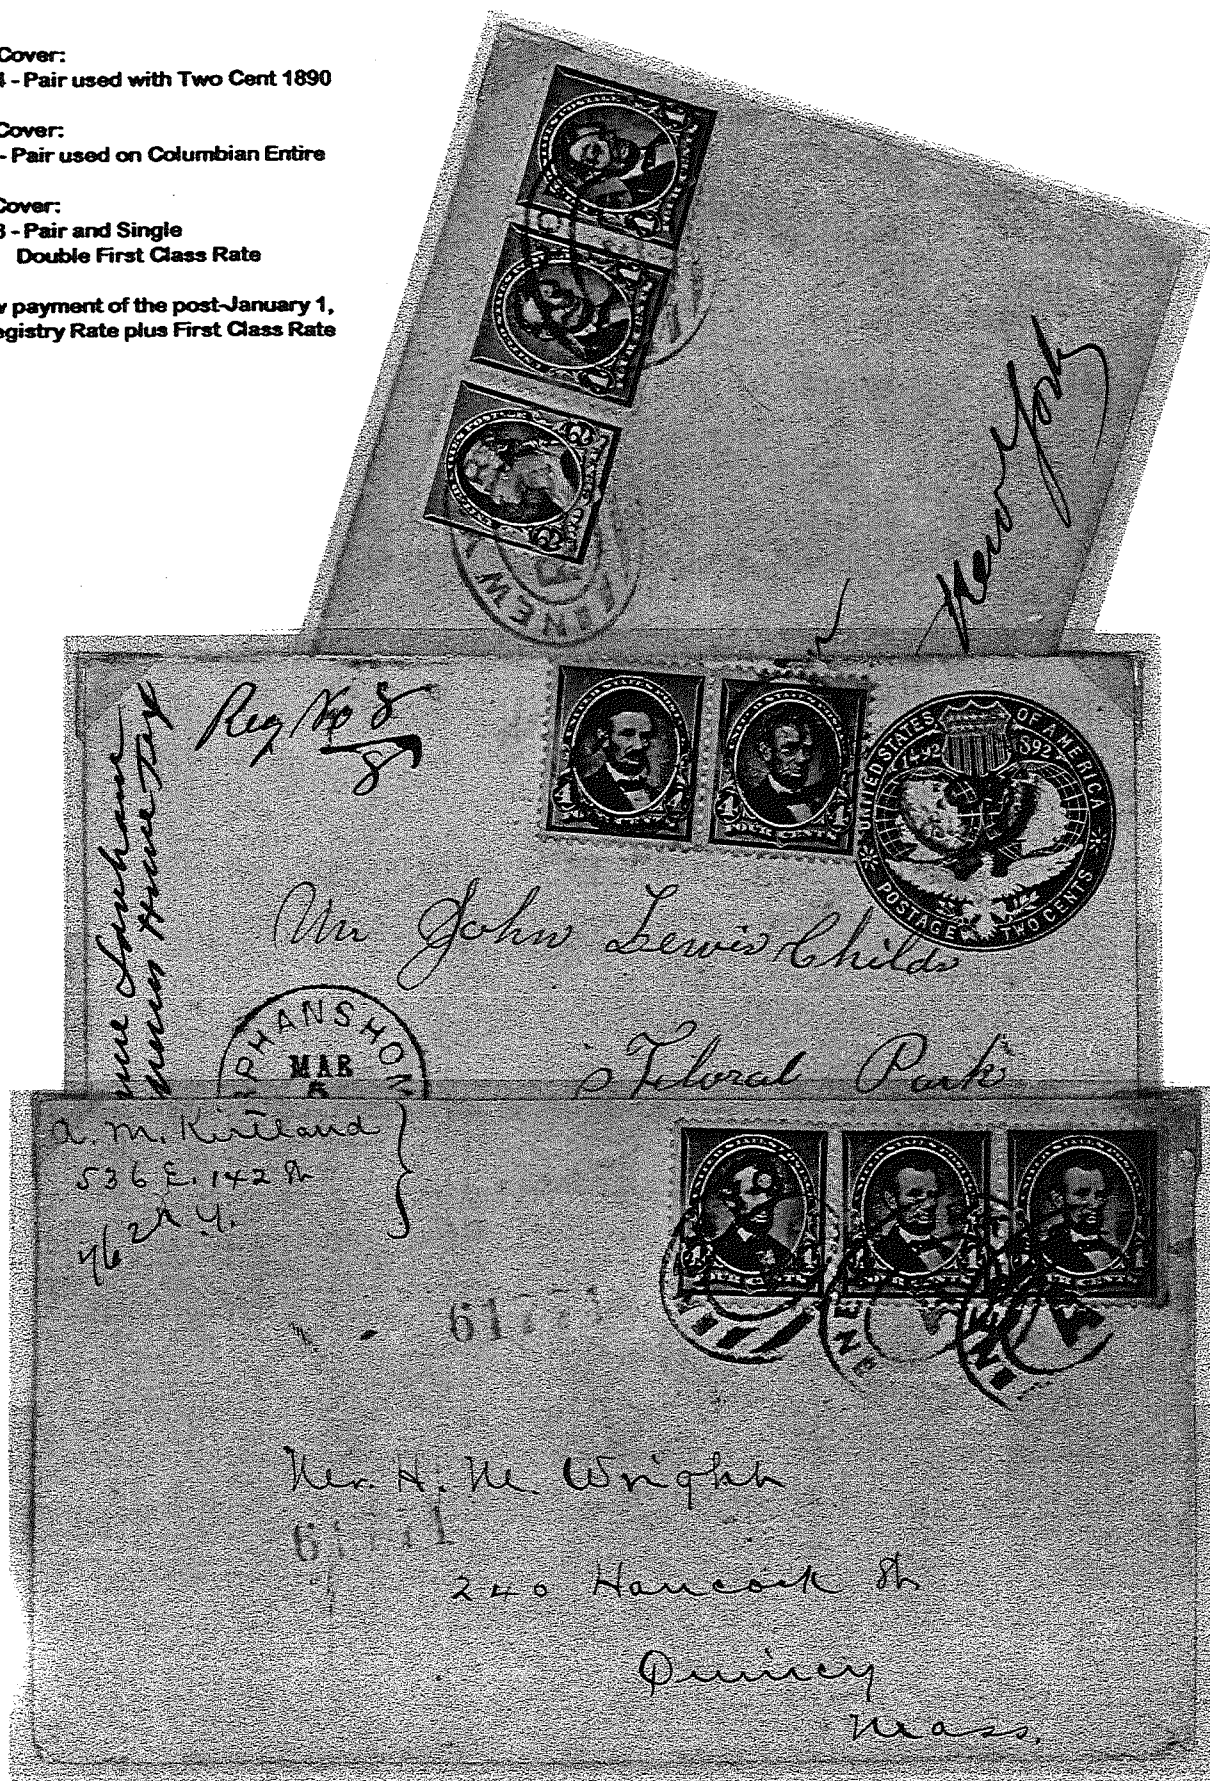 Cover:
4 - Pair used with Two Cent 1890
Cover:
- Pair used on Columbian Entire
Cover:
3 - Pair and Single
Double First Class Rate
payment of the post-January 1,
egistry Rate plus First Class Rate
New York
NEW
Reg No 8
8
UNITED STATES OF AMERICA
1492 1892
POSTAGE TWO CENTS
House Tex
Mr John Lewis Childs
Floral Park
RPHANSHOM
MAR
5
A. M. Kirtland
536 E. 142 St
N.Y.
FOUR CENTS
61771
Mr. H. M. Wright
61771
240 Hancock St
Quincy
Mass.